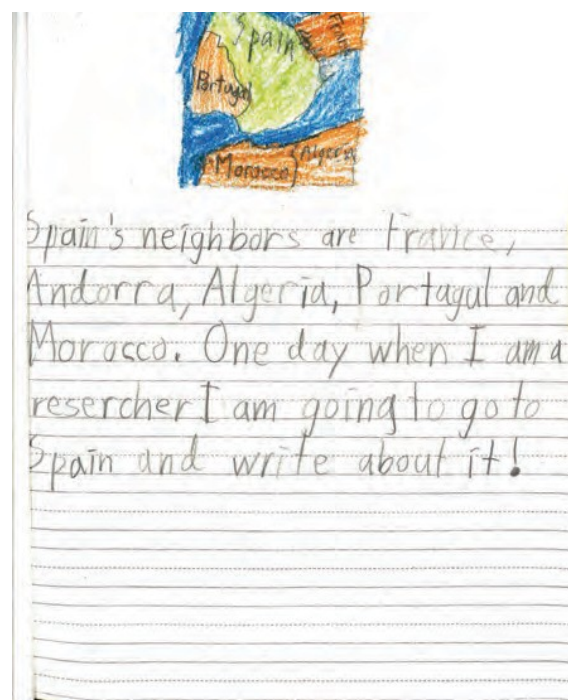 Spain
France
Portugal
Morocco
Algeria
Spain's neighbors are France,
Andorra, Algeria, Portugul and
Morocco. One day when I am a
resercher I am going to go to
Spain and write about it!